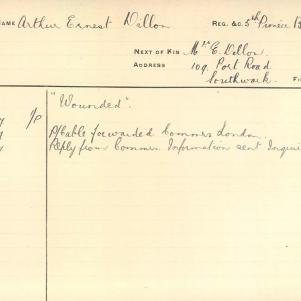 NAME Arthur Ernest Dillon REG. &C. 5th Pioneer B
NEXT OF KIN Mrs E. Dillon.
ADDRESS 109, Port Road
Southwark.
"Wounded".
Cable forwarded Commrs London.
Reply from Commrs. Information sent Inquir